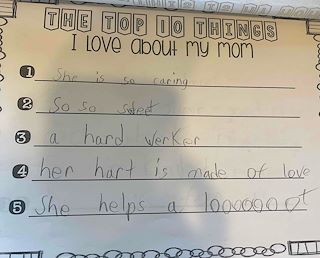 THE TOP 10 THINGS
I LOVE about my mom
1 She is so caring
2 So so sweet
3 a hard werker
4 her hart is made of love
5 She helps a 1000000 t